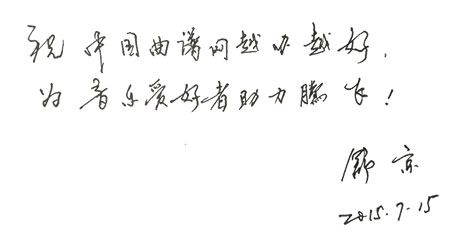 祝中国曲谱网越办越好,
为音乐爱好者助力腾飞!
京
2015.7.15